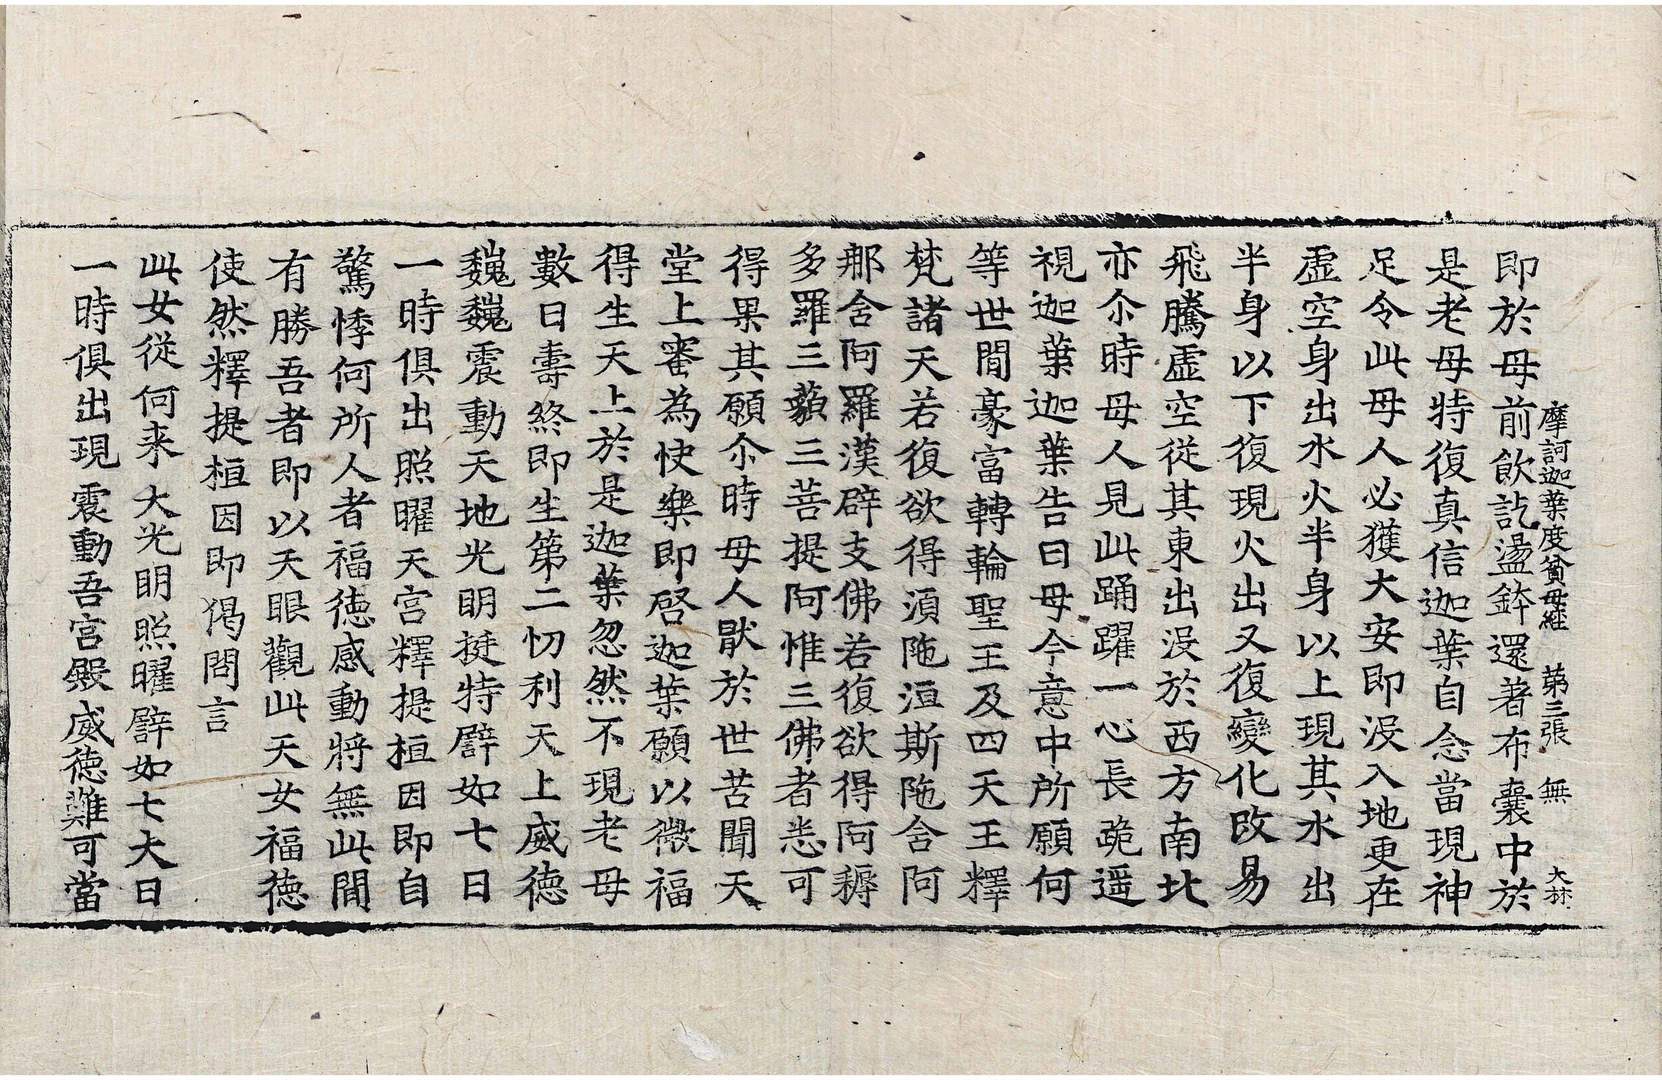 摩訶迦葉度貧母經 第三張 無 大林
即於母前飲訖盪鉢還著布囊中於
是老母特復真信迦葉自念當現神
足令此母人必獲大安即没入地更在
虛空身出水火半身以上現其水出
半身以下復現火出又復變化改易
飛騰虛空從其東出没於西方南北
亦尒時母人見此踊躍一心長跪遥
視迦葉迦葉告曰母今意中所願何
等世間豪富轉輪聖王及四天王釋
梵諸天若復欲得須陁洹斯陁含阿
那含阿羅漢辟支佛若復欲得阿耨
多羅三藐三菩提阿惟三佛者悉可
得果其願尒時母人猒於世苦聞天
堂上審為快樂即啓迦葉願以微福
得生天上於是迦葉忽然不現老母
數日壽終即生第二忉利天上威德
巍巍震動天地光明挺特譬如七日
一時俱出照曜天宮釋提桓因即自
驚悸何所人者福德感動將無此間
有勝吾者即以天眼觀此天女福德
使然釋提桓因即偈問言
此女從何来 大光明照曜譬如七大日
一時俱出現 震動吾宮殿威德難可當